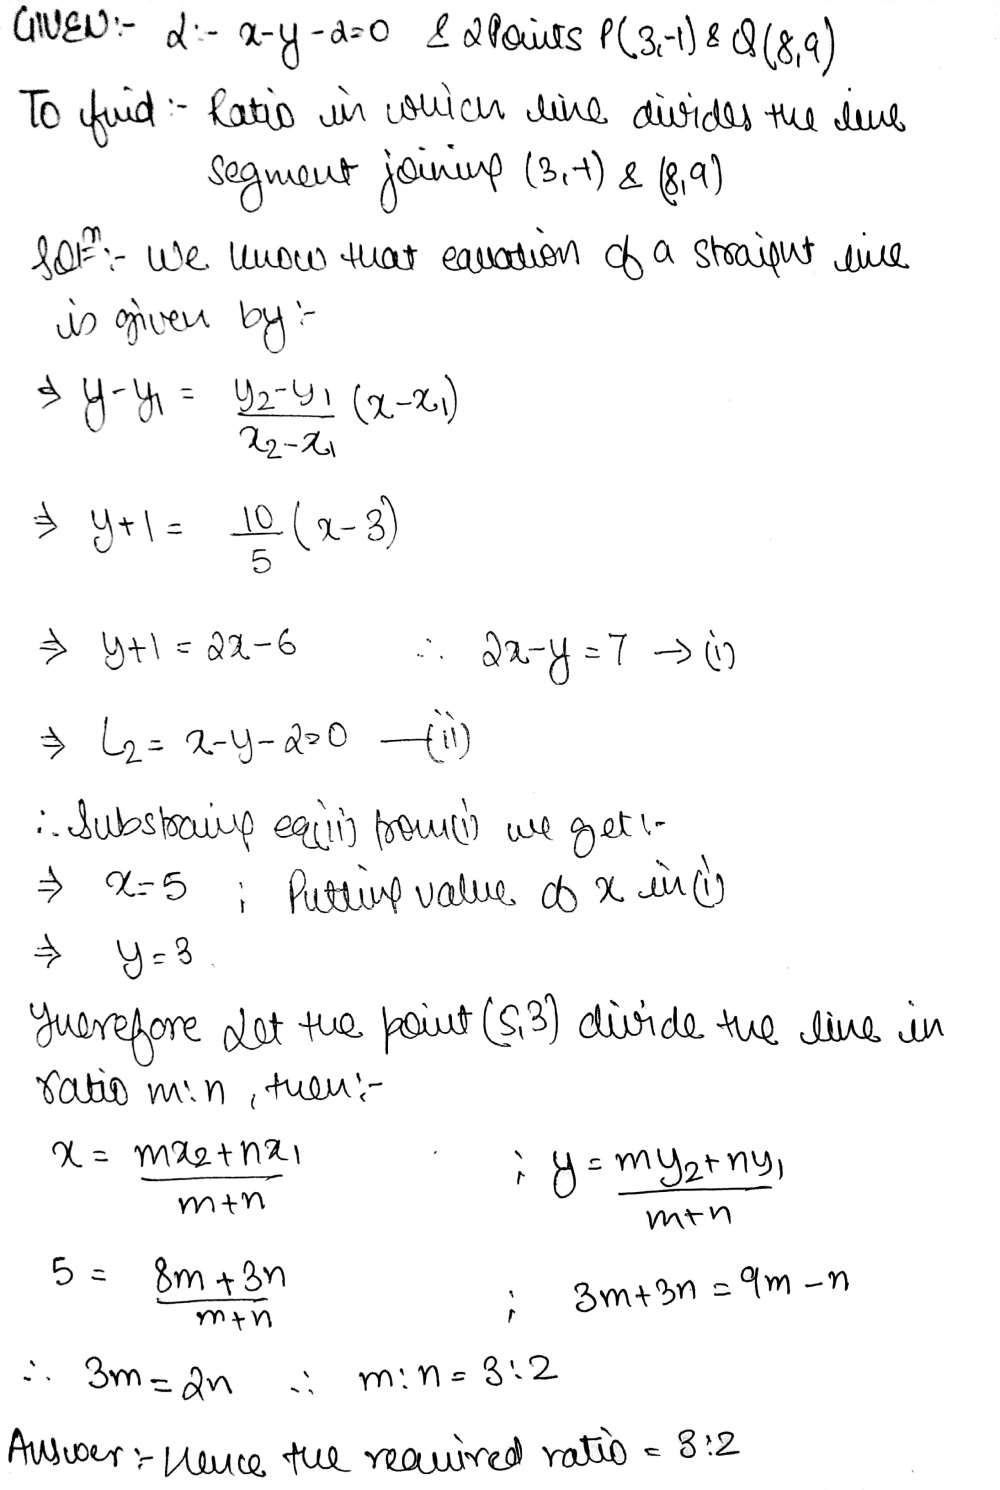 GIVEN:- L:- x-y-2=0 & 2 Points P(3,-1) & Q(8,9)
To find:- Ratio in which line divides the line
segment joining (3,-1) & (8,9)
Solⁿ:- We know that equation of a straight line
is given by:-
⇒ y-y₁ = (y₂-y₁)/(x₂-x₁) (x-x₁)
⇒ y+1 = 10/5 (x-3)
⇒ y+1 = 2x-6 ∴ 2x-y=7 → (i)
⇒ L₂ = x-y-2=0 —(ii)
∴ Substraing eq(ii) from(i) we get:-
⇒ x=5 ; Putting value of x in (i)
⇒ y=3
Therefore Let the point (5,3) divide the line in
ratio m:n, then:-
x = (mx₂+nx₁)/(m+n) ; y = (my₂+ny₁)/(m+n)
5 = (8m+3n)/(m+n) ; 3m+3n = 9m-n
∴ 3m=2n ∴ m:n = 3:2
Answer:- Hence the required ratio = 3:2